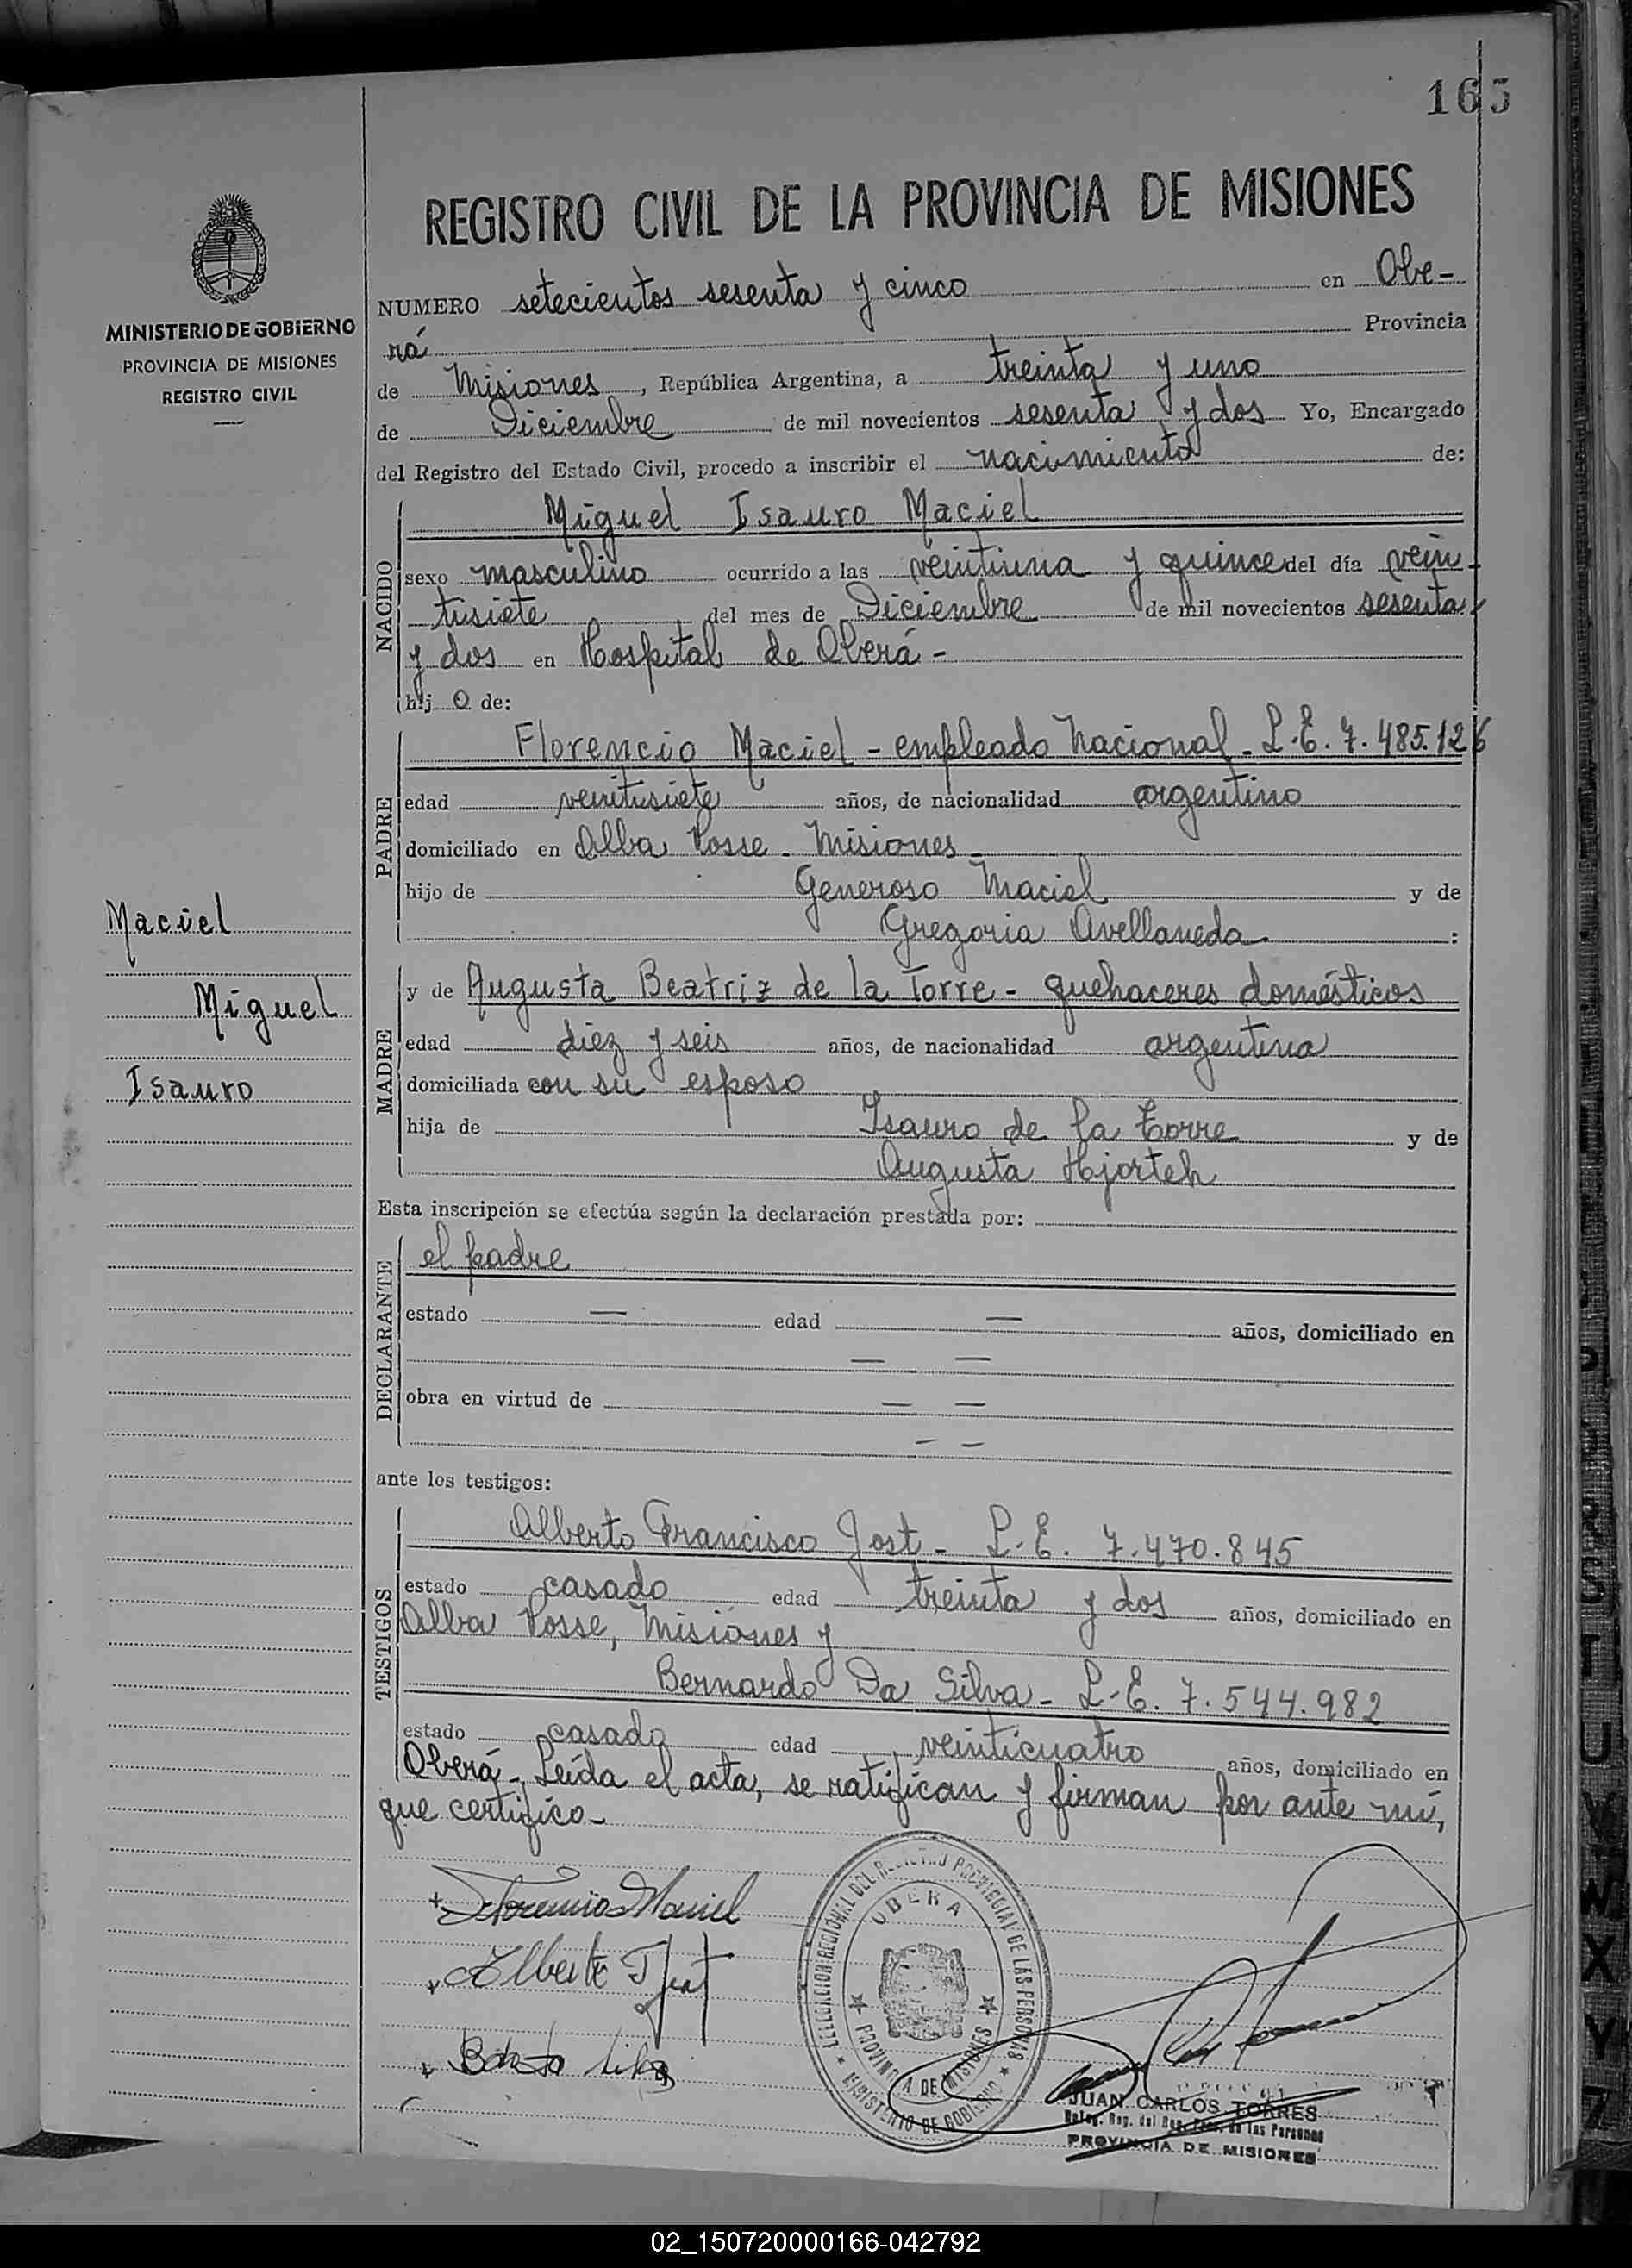 165
REGISTRO CIVIL DE LA PROVINCIA DE MISIONES
MINISTERIO DE GOBIERNO
PROVINCIA DE MISIONES
REGISTRO CIVIL
NUMERO setecientos sesenta y cinco en Obe-
rá Provincia
de Misiones, República Argentina, a treinta y uno
de Diciembre de mil novecientos sesenta y dos Yo, Encargado
del Registro del Estado Civil, procedo a inscribir el nacimiento de:
NACIDO
Miguel Isauro Maciel
sexo masculino ocurrido a las veintiuna y quince del día vein
tisiete del mes de Diciembre de mil novecientos sesenta
y dos en Hospital de Oberá -
hij o de:
PADRE
Florencio Maciel - empleado Nacional - L.E. 7.485.126
edad veintisiete años, de nacionalidad argentino
domiciliado en Alba Posse - Misiones -
hijo de Generoso Maciel y de
Gregoria Avellaneda :
Maciel
Miguel
Isauro
MADRE
y de Augusta Beatriz de la Torre - quehaceres domésticos
edad diez y seis años, de nacionalidad argentina
domiciliada con su esposo
hija de Isauro de la Torre y de
Augusta Hjorteh
Esta inscripción se efectúa según la declaración prestada por:
DECLARANTE
el padre
estado — edad — años, domiciliado en
— —
obra en virtud de — —
— —
ante los testigos:
TESTIGOS
Alberto Francisco Jost - L.E. 7.470.845
estado casado edad treinta y dos años, domiciliado en
Alba Posse, Misiones y
Bernardo Da Silva - L.E. 7.544.982
estado casado edad veinticuatro años, domiciliado en
Oberá - Leída el acta, se ratifican y firman por ante mí,
que certifico -
+ Florencio Maciel
+ Alberto F Jost
DELEGACION REGIONAL DEL REGISTRO PROVINCIAL DE LAS PERSONAS
OBERA
PROVINCIA DE MISIONES
MINISTERIO DE GOBIERNO
JUAN CARLOS TORRES
Deleg. Reg. del Reg. Prov. de las Personas
PROVINCIA DE MISIONES
S
T
U
V
W
X
Y
Z
02_150720000166-042792